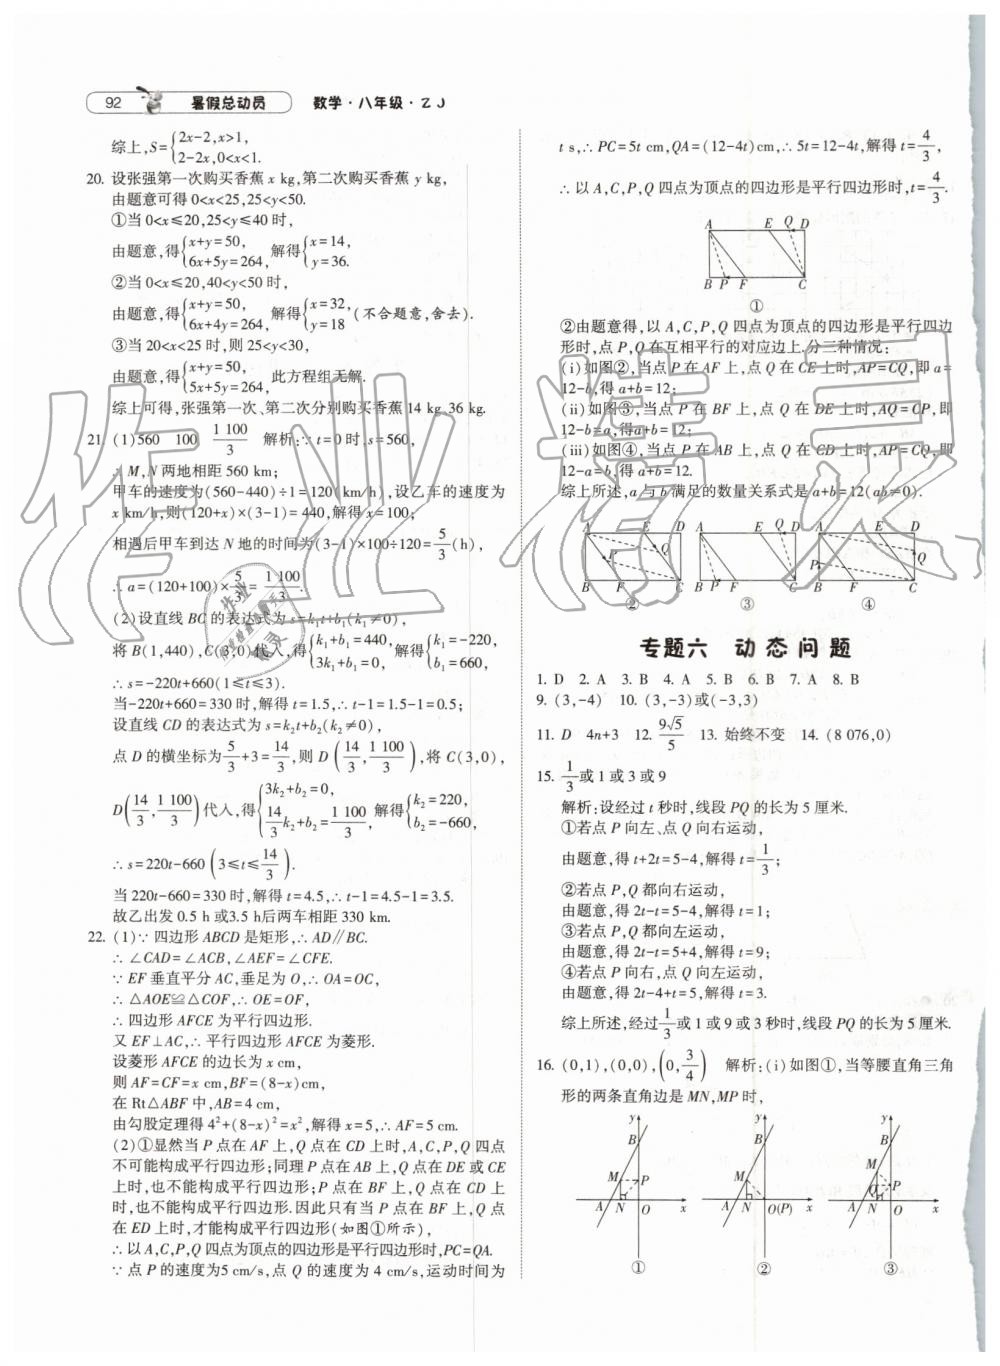 92 暑假总动员 数学·八年级·ZJ
综上,S={2x-2,x>1,
2-2x,0<x<1.
20. 设张强第一次购买香蕉 x kg,第二次购买香蕉 y kg,
由题意可得 0<x<25,25<y<50.
①当 0<x≤20,25<y≤40 时,
由题意,得{x+y=50, 6x+5y=264, 解得{x=14, y=36.
②当 0<x≤20,40<y<50 时,
由题意,得{x+y=50, 6x+4y=264, 解得{x=32, y=18 (不合题意,舍去).
③当 20<x<25 时,则 25<y<30,
由题意,得{x+y=50, 5x+5y=264, 此方程组无解.
综上可得,张强第一次、第二次分别购买香蕉 14 kg,36 kg.
21. (1)560 100 1 100/3 解析:∵t=0时,s=560,
∴M,N 两地相距 560 km;
甲车的速度为(560-440)÷1=120(km/h),设乙车的速度为
x km/h,则(120+x)×(3-1)=440,解得 x=100;
相遇后甲车到达 N 地的时间为(3-1)×100÷120=5/3(h),
∴a=(120+100)×5/3=1 100/3.
(2)设直线 BC 的表达式为 s=k₁t+b₁(k₁≠0),
将 B(1,440),C(3,0)代入,得{k₁+b₁=440, 3k₁+b₁=0, 解得{k₁=-220, b₁=660,
∴s=-220t+660(1≤t≤3).
当-220t+660=330 时,解得 t=1.5,∴t-1=1.5-1=0.5;
设直线 CD 的表达式为 s=k₂t+b₂(k₂≠0),
点 D 的横坐标为 5/3+3=14/3,则 D(14/3,1 100/3),将 C(3,0),
D(14/3,1 100/3)代入,得{3k₂+b₂=0, 14/3k₂+b₂=1 100/3, 解得{k₂=220, b₂=-660,
∴s=220t-660(3≤t≤14/3).
当 220t-660=330 时,解得 t=4.5,∴t-1=4.5-1=3.5.
故乙出发 0.5 h 或3.5 h后两车相距 330 km.
22. (1)∵四边形 ABCD 是矩形,∴AD∥BC.
∴∠CAD=∠ACB,∠AEF=∠CFE.
∵EF 垂直平分 AC,垂足为 O,∴OA=OC,
∴△AOE≌△COF,∴OE=OF,
∴四边形 AFCE 为平行四边形.
又 EF⊥AC,∴平行四边形 AFCE 为菱形.
设菱形 AFCE 的边长为 x cm,
则 AF=CF=x cm,BF=(8-x)cm,
在 Rt△ABF 中,AB=4 cm,
由勾股定理得 4²+(8-x)²=x²,解得 x=5,∴AF=5 cm.
(2)①显然当 P 点在 AF 上,Q 点在 CD 上时,A,C,P,Q 四点
不可能构成平行四边形;同理 P 点在 AB 上,Q 点在 DE 或 CE
上时,也不能构成平行四边形;P 点在 BF 上,Q 点在 CD 上
时,也不能构成平行四边形.因此只有当 P 点在 BF 上,Q 点
在 ED 上时,才能构成平行四边形(如图①所示),
∴以 A,C,P,Q 四点为顶点的四边形是平行四边形时,PC=QA.
∵点 P 的速度为5 cm/s,点 Q 的速度为 4 cm/s,运动时间为
t s,∴PC=5t cm,QA=(12-4t)cm,∴5t=12-4t,解得 t=4/3,
∴以 A,C,P,Q 四点为顶点的四边形是平行四边形时,t=4/3.
A E Q D
B P F C
①
②由题意得,以 A,C,P,Q 四点为顶点的四边形是平行四边
形时,点 P,Q 在互相平行的对应边上.分三种情况:
(i)如图②,当点 P 在 AF 上,点 Q 在 CE 上时,AP=CQ,即 a=
12-b,得 a+b=12;
(ii)如图③,当点 P 在 BF 上,点 Q 在 DE 上时,AQ=CP,即
12-b=a,得a+b=12;
(iii)如图④,当点 P 在 AB 上,点 Q 在 CD 上时,AP=CQ,即
12-a=b,得 a+b=12.
综上所述,a 与 b 满足的数量关系式是 a+b=12(ab≠0).
A E D A E Q D A E D
P Q P Q
B F C B P F C B F C
② ③ ④
专题六 动态问题
1. D 2. A 3. B 4. A 5. B 6. B 7. A 8. B
9. (3,-4) 10. (3,-3)或(-3,3)
11. D 4n+3 12. 9√5/5 13. 始终不变 14. (8 076,0)
15. 1/3或 1 或 3 或 9
解析:设经过 t 秒时,线段 PQ 的长为 5 厘米.
①若点 P 向左、点 Q 向右运动,
由题意,得 t+2t=5-4,解得 t=1/3;
②若点 P,Q 都向右运动,
由题意,得 2t-t=5-4,解得 t=1;
③若点 P,Q 都向左运动,
由题意,得 2t-t=5+4,解得 t=9;
④若点 P 向右,点 Q 向左运动,
由题意,得 2t-4+t=5,解得 t=3.
综上所述,经过1/3或 1 或 9 或 3 秒时,线段 PQ 的长为 5 厘米.
16. (0,1),(0,0),(0,3/4) 解析:(i)如图①,当等腰直角三角
形的两条直角边是 MN,MP 时,
y y y
B B B
M P M M P Q
A N O x A N O(P) x A N O x
① ② ③
作业精灵